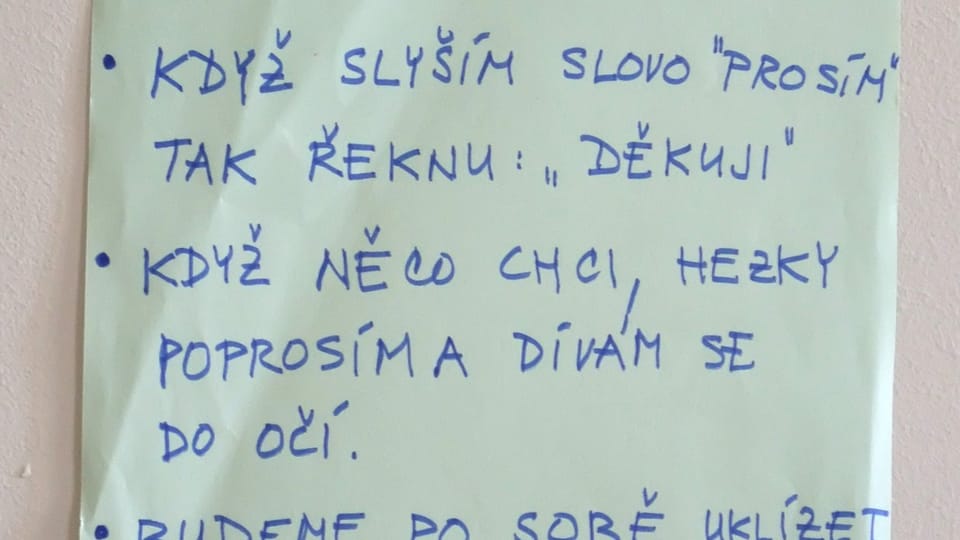 • KDYŽ SLYŠÍM SLOVO "PROSÍM"
TAK ŘEKNU: „DĚKUJI"
• KDYŽ NĚCO CHCI, HEZKY
POPROSÍM A DÍVÁM SE
DO OČÍ.
• BUDEME PO SOBĚ UKLÍZET